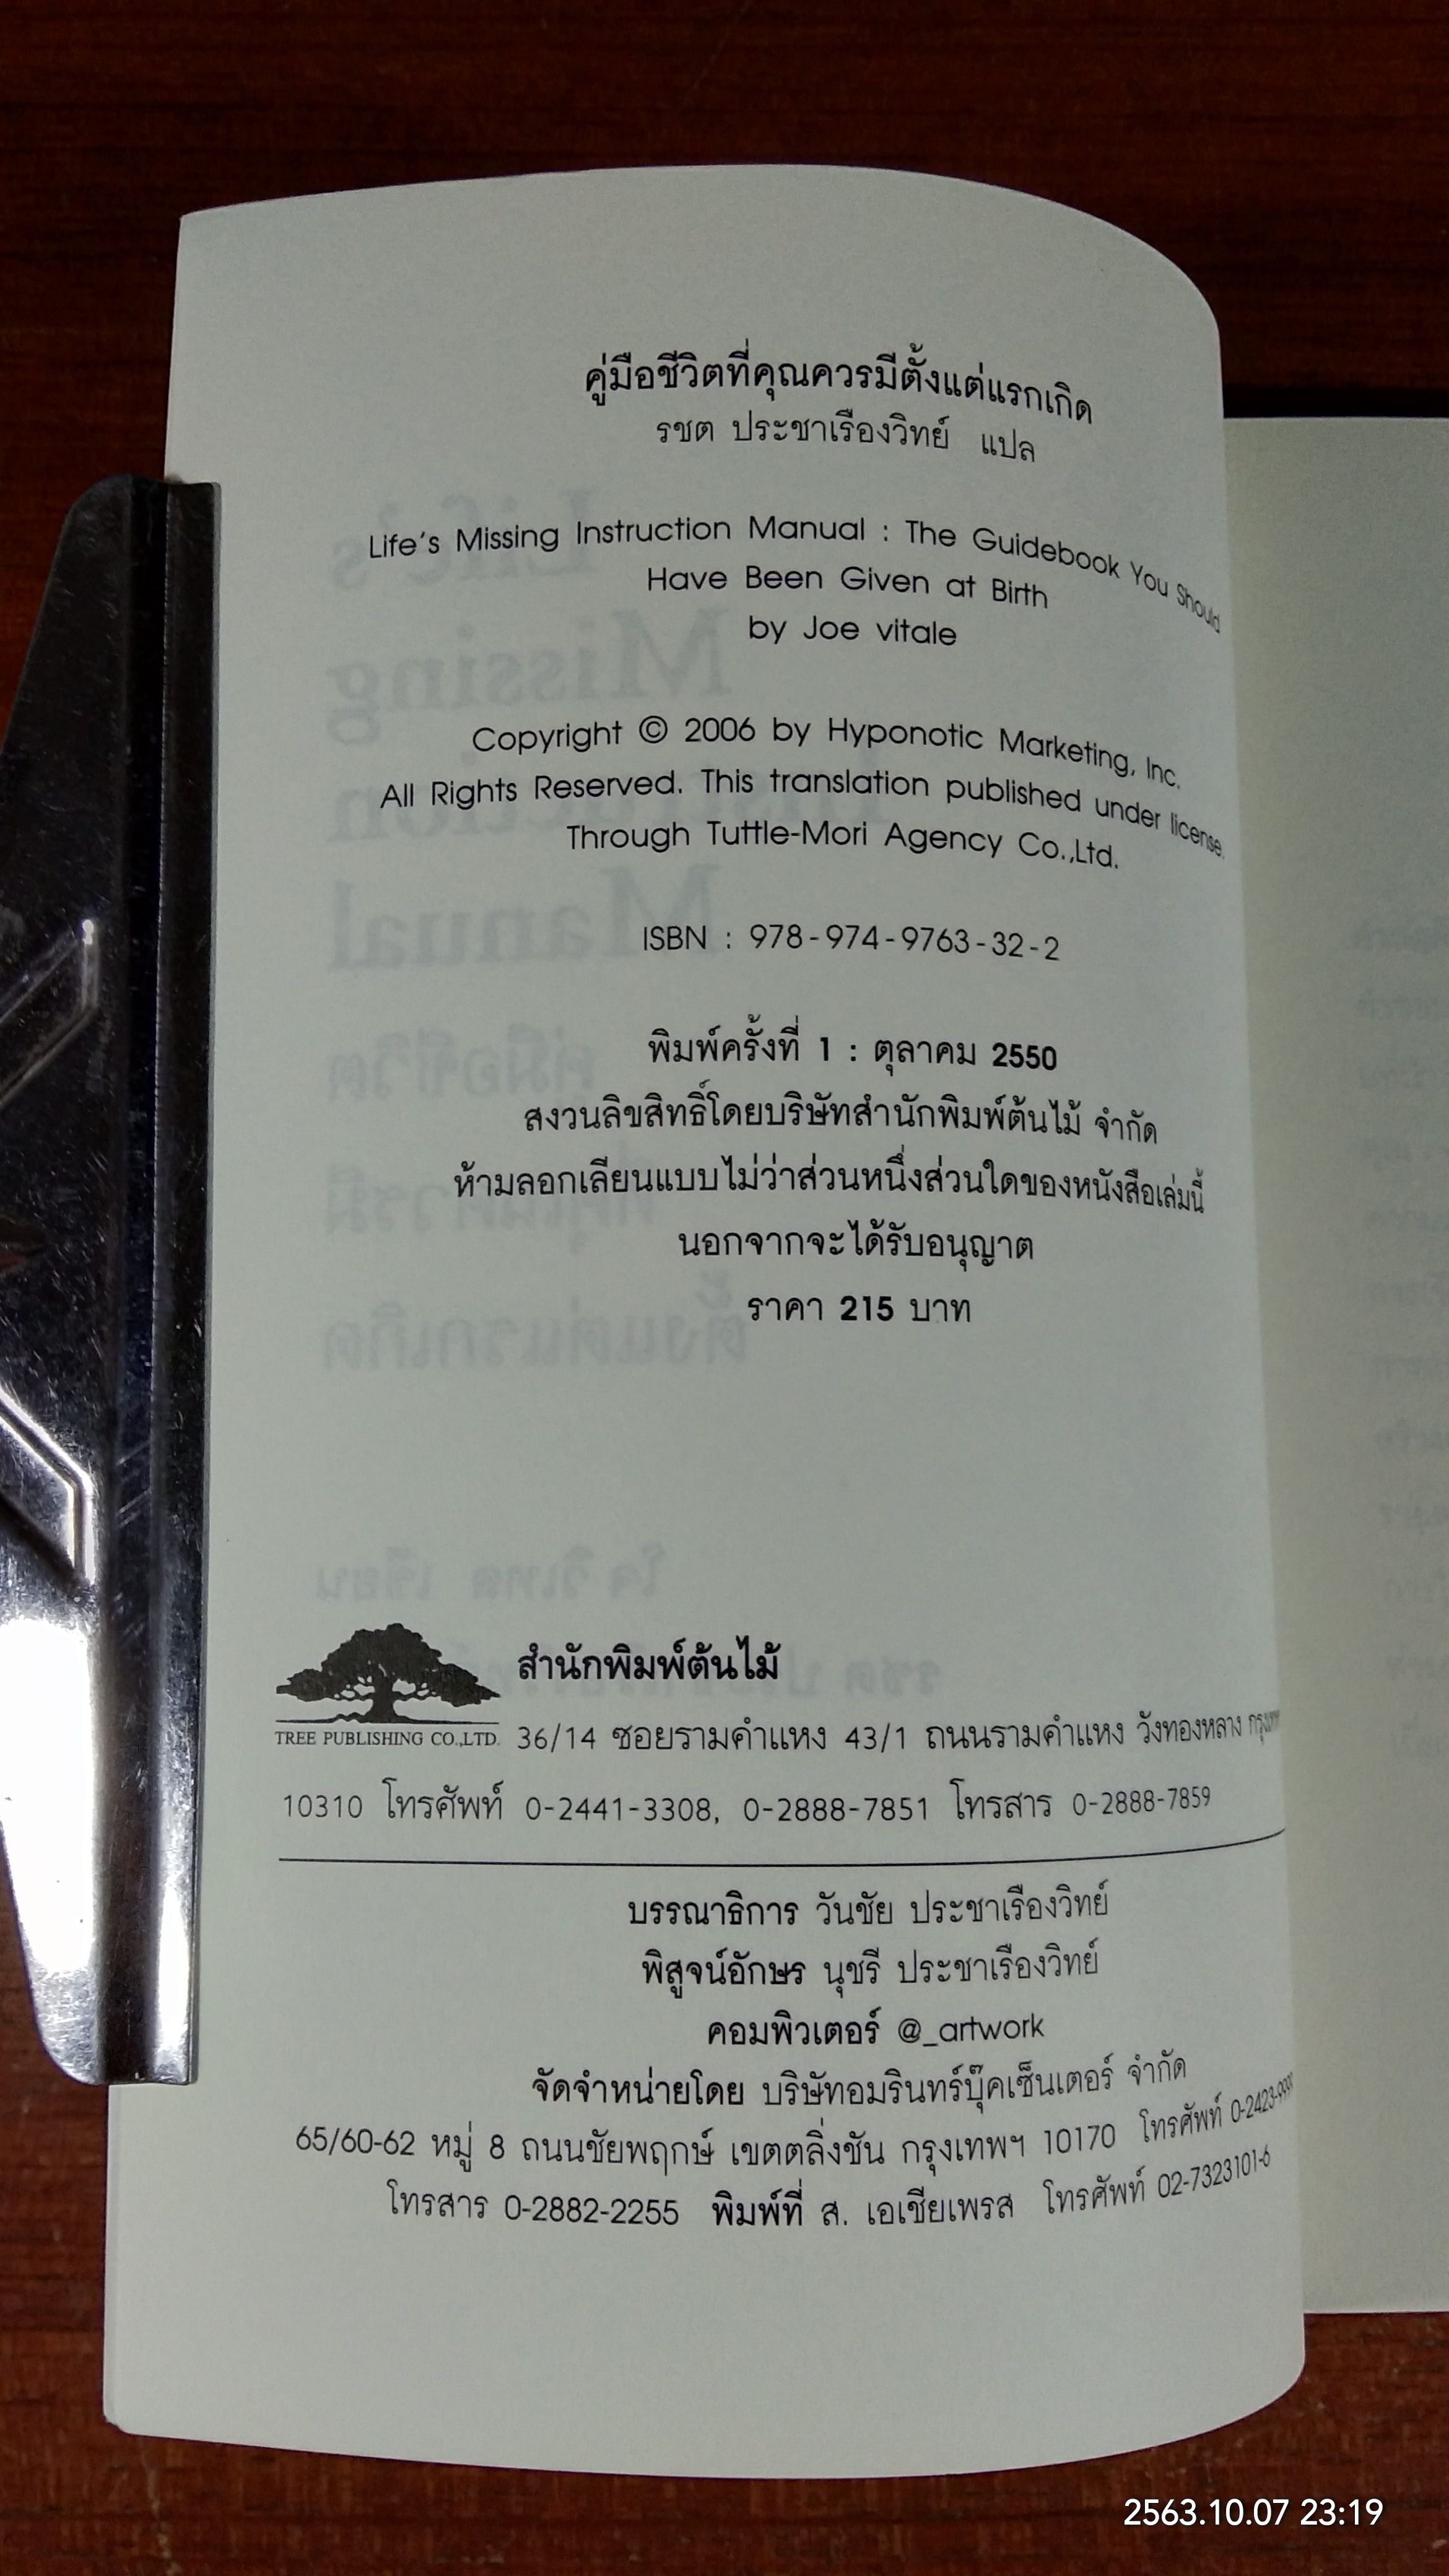 คู่มือชีวิตที่คุณควรมีตั้งแต่แรกเกิด
รชต ประชาเรืองวิทย์ แปล
Life's Missing Instruction Manual : The Guidebook You Should
Have Been Given at Birth
by Joe vitale
Copyright © 2006 by Hyponotic Marketing, Inc.
All Rights Reserved. This translation published under license.
Through Tuttle-Mori Agency Co.,Ltd.
ISBN : 978-974-9763-32-2
พิมพ์ครั้งที่ 1 : ตุลาคม 2550
สงวนลิขสิทธิ์โดยบริษัทสำนักพิมพ์ต้นไม้ จำกัด
ห้ามลอกเลียนแบบไม่ว่าส่วนหนึ่งส่วนใดของหนังสือเล่มนี้
นอกจากจะได้รับอนุญาต
ราคา 215 บาท
สำนักพิมพ์ต้นไม้
TREE PUBLISHING CO.,LTD.
36/14 ซอยรามคำแหง 43/1 ถนนรามคำแหง วังทองหลาง
10310 โทรศัพท์ 0-2441-3308, 0-2888-7851 โทรสาร 0-2888-7859
บรรณาธิการ วันชัย ประชาเรืองวิทย์
พิสูจน์อักษร นุชรี ประชาเรืองวิทย์
คอมพิวเตอร์ @_artwork
จัดจำหน่ายโดย บริษัทอมรินทร์บุ๊คเซ็นเตอร์ จำกัด
65/60-62 หมู่ 8 ถนนชัยพฤกษ์ เขตตลิ่งชัน กรุงเทพฯ 10170 โทรศัพท์
โทรสาร 0-2882-2255 พิมพ์ที่ ส. เอเชียเพรส โทรศัพท์ 02-7323101-6
2563.10.07 23:19